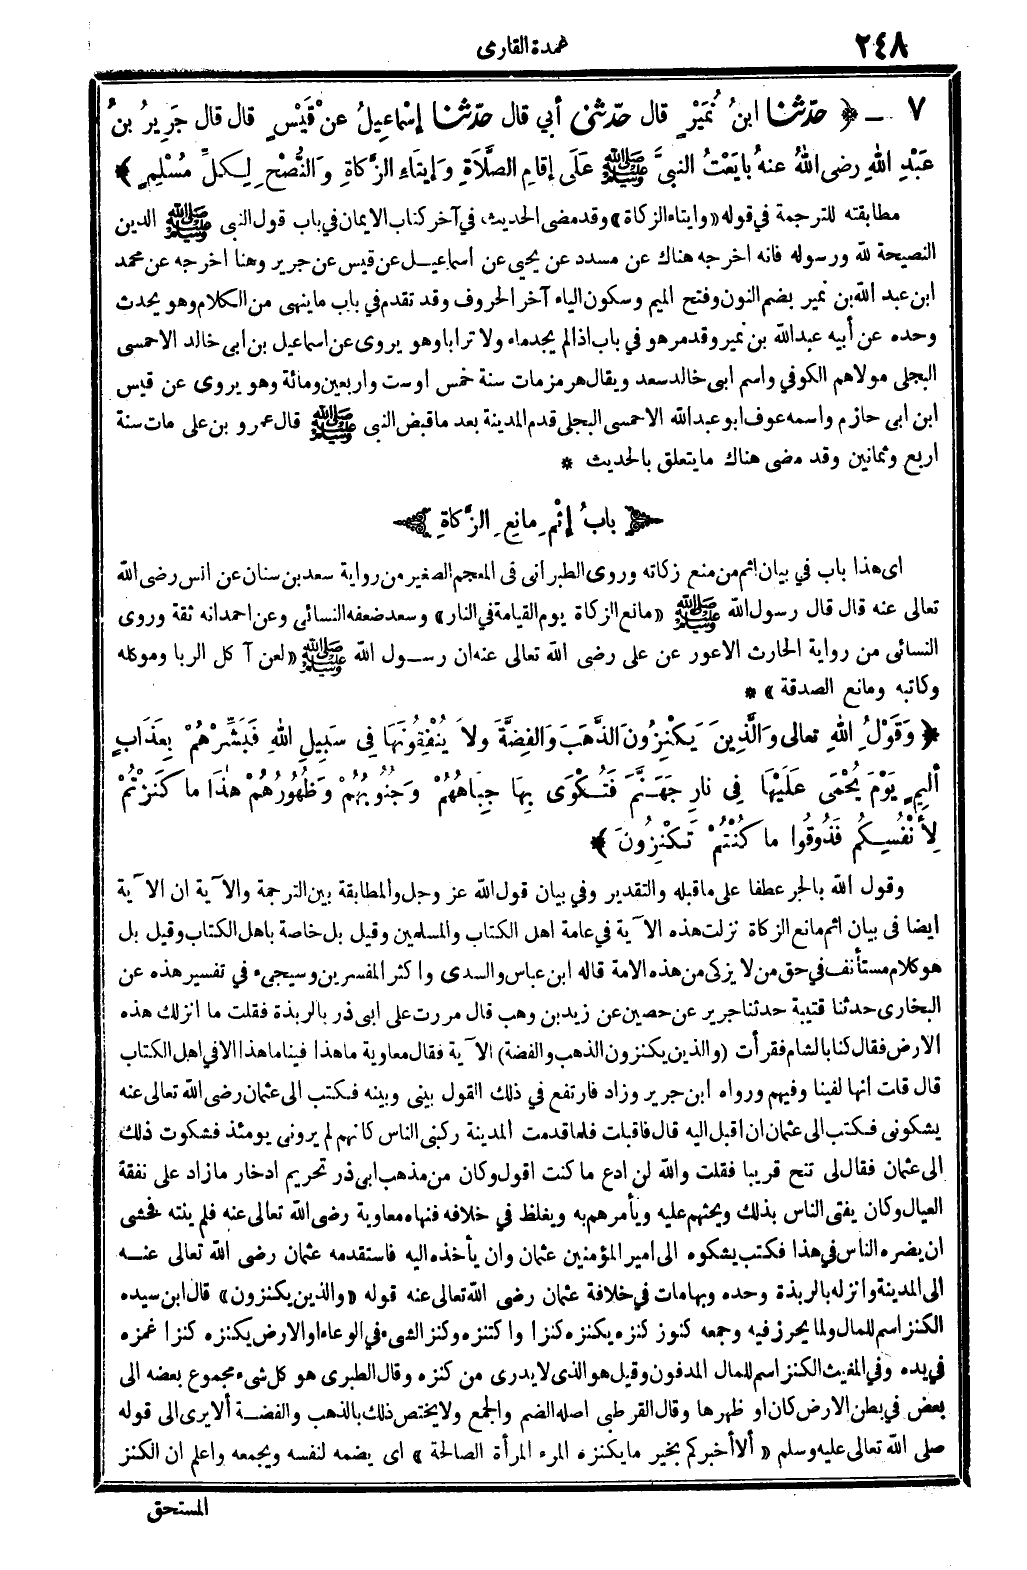 ٢٤٨
عمدة القارى
٧ - ﴿ حَدَّثنا ابنُ نُمَيْرٍ قال حدّثنى أبي قال حدّثنا إسْماعِيلُ عنْ قَيْسٍ قال قال جَرِيرُ بنُ
عَبْدِ اللهِ رضى اللهُ عنهُ بايَعْتُ النبىَّ ﷺ عَلَى إقامِ الصَّلَاةِ وَإيتَاءِ الزَّكاةِ وَالنُّصْحِ لِكلِّ مُسْلِمٍ ﴾
مطابقته للترجمة في قوله «وايتاء الزكاة» وقد مضى الحديث في آخر كتاب الايمان في باب قول النبى ﷺ الدين
النصيحة لله ورسوله فانه اخرجه هناك عن مسدد عن يحيى عن اسماعيل عن قيس عن جرير وهنا اخرجه عن محمد
ابن عبد الله بن نمير بضم النون وفتح الميم وسكون الياء آخر الحروف وقد تقدم في باب ما ينهى من الكلام وهو يحدث
وحده عن أبيه عبد الله بن نمير وقد مر هو في باب اذا لم يجد ماء ولا ترابا وهو يروى عن اسماعيل بن ابى خالد الاحمسى
البجلى مولاهم الكوفي واسم ابى خالد سعد ويقال هرمز مات سنة خمس او ست واربعين ومائة وهو يروى عن قيس
ابن ابى حازم واسمه عوف ابو عبد الله الاحمسى البجلى قدم المدينة بعد ما قبض النبى ﷺ قال عمرو بن على مات سنة
اربع وثمانين وقد مضى هناك ما يتعلق بالحديث *
﴿ بابُ إثْمِ مانِعِ الزَّكاةِ ﴾
اى هذا باب في بيان اثم من منع زكاته وروى الطبرانى فى المعجم الصغير من رواية سعد بن سنان عن انس رضى الله
تعالى عنه قال قال رسول الله ﷺ «مانع الزكاة يوم القيامة في النار» وسعد ضعفه النسائى وعن احمد انه ثقة وروى
النسائى من رواية الحارث الاعور عن على رضى الله تعالى عنه ان رسول الله ﷺ «لعن آكل الربا وموكله
وكاتبه ومانع الصدقة» *
﴿ وَقَوْلُ اللهِ تعالى وَالَّذِينَ يَكْنِزُونَ الذَّهَبَ وَالفِضَّةَ ولاَ يُنْفِقُونَهَا فِي سَبِيلِ اللهِ فَبَشِّرْهُمْ بِعَذَابٍ
ألِيمٍ يَوْمَ يُحْمَى عَلَيْهَا فِي نارِ جَهَنَّمَ فَتُكْوَى بِهَا جِبَاهُهُمْ وَجُنُوبُهُمْ وَظُهُورُهُمْ هٰذَا ما كَنَزْتُمْ
لِأنْفُسِكُم فَذُوقُوا ما كُنْتُمْ تَكْنِزُونَ ﴾
وقول الله بالجر عطفا على ما قبله والتقدير وفي بيان قول الله عز وجل والمطابقة بين الترجمة والآية ان الآية
ايضا فى بيان اثم مانع الزكاة نزلت هذه الآية في عامة اهل الكتاب والمسلمين وقيل بل خاصة باهل الكتاب وقيل بل
هو كلام مستأنف في حق من لا يزكى من هذه الامة قاله ابن عباس والسدى واكثر المفسرين وسيجىء في تفسير هذه عن
البخارى حدثنا قتيبة حدثنا جرير عن حصين عن زيد بن وهب قال مررت على ابى ذر بالربذة فقلت ما انزلك هذه
الارض فقال كنا بالشام فقرأت (والذين يكنزون الذهب والفضة) الآية فقال معاوية ما هذا فينا ما هذا الا في اهل الكتاب
قال قلت أنها لفينا وفيهم ورواه ابن جرير وزاد فارتفع في ذلك القول بينى وبينه فكتب الى عثمان رضى الله تعالى عنه
يشكونى فكتب الى عثمان ان اقبل اليه قال فاقبلت فلما قدمت المدينة ركبنى الناس كانهم لم يرونى يومئذ فشكوت ذلك
الى عثمان فقال لى تنح قريبا فقلت والله لن ادع ما كنت اقول وكان من مذهب ابى ذر تحريم ادخار ما زاد على نفقة
العيال وكان يفتى الناس بذلك ويحثهم عليه ويأمرهم به ويغلظ في خلافه فنهاه معاوية رضى الله تعالى عنه فلم ينته فخشى
ان يضره الناس في هذا فكتب يشكوه الى امير المؤمنين عثمان وان يأخذه اليه فاستقدمه عثمان رضى الله تعالى عنه
الى المدينة وانزله بالربذة وحده وبها مات في خلافة عثمان رضى الله تعالى عنه قوله «والذين يكنزون» قال ابن سيده
الكنز اسم للمال ولما يحرز فيه وجمعه كنوز كنزه يكنزه كنزا واكتنزه وكنز الشىء في الوعاء او الارض يكنزه كنزا غمزه
في يده وفي المغيث الكنز اسم للمال المدفون وقيل هو الذى لا يدرى من كنزه وقال الطبرى هو كل شىء مجموع بعضه الى
بعض في بطن الارض كان او ظهرها وقال القرطبى اصله الضم والجمع ولا يختص ذلك بالذهب والفضة ألا يرى الى قوله
صلى الله تعالى عليه وسلم «ألا أخبركم بخير ما يكنزه المرء المرأة الصالحة» اى يضمه لنفسه ويجمعه واعلم ان الكنز
المستحق